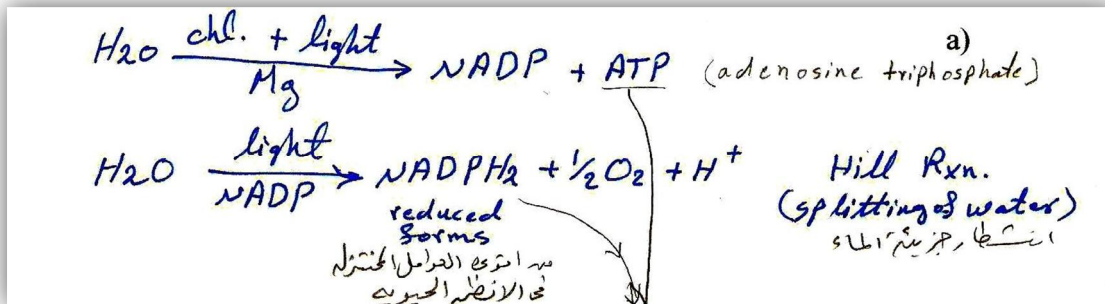 a)
H2O chl. + light / Mg → NADP + ATP (adenosine triphosphate)
H2O light / NADP → NADPH2 + ½O2 + H+ Hill Rxn.
(splitting of water)
انشطار جزيئة الماء
reduced
forms
من اقوى العوامل المختزله
في الانظمه الحيويه